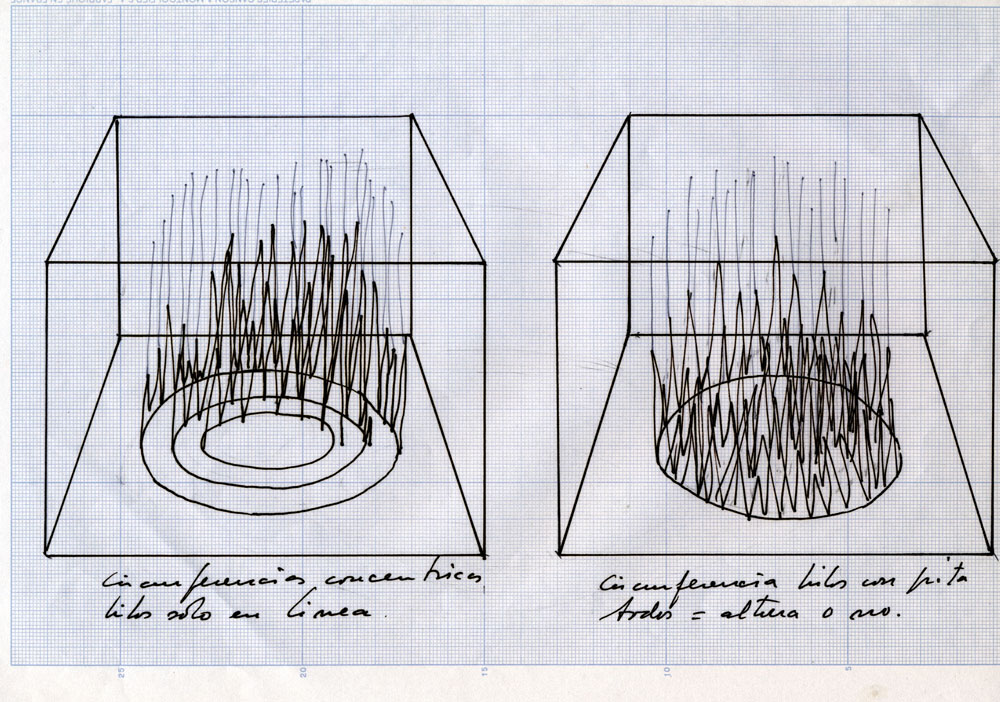 circunferencias concentricas
hilos sólo en linea.
circunferencia hilos con pita
todos = altura o no.
25
20
15
10
5